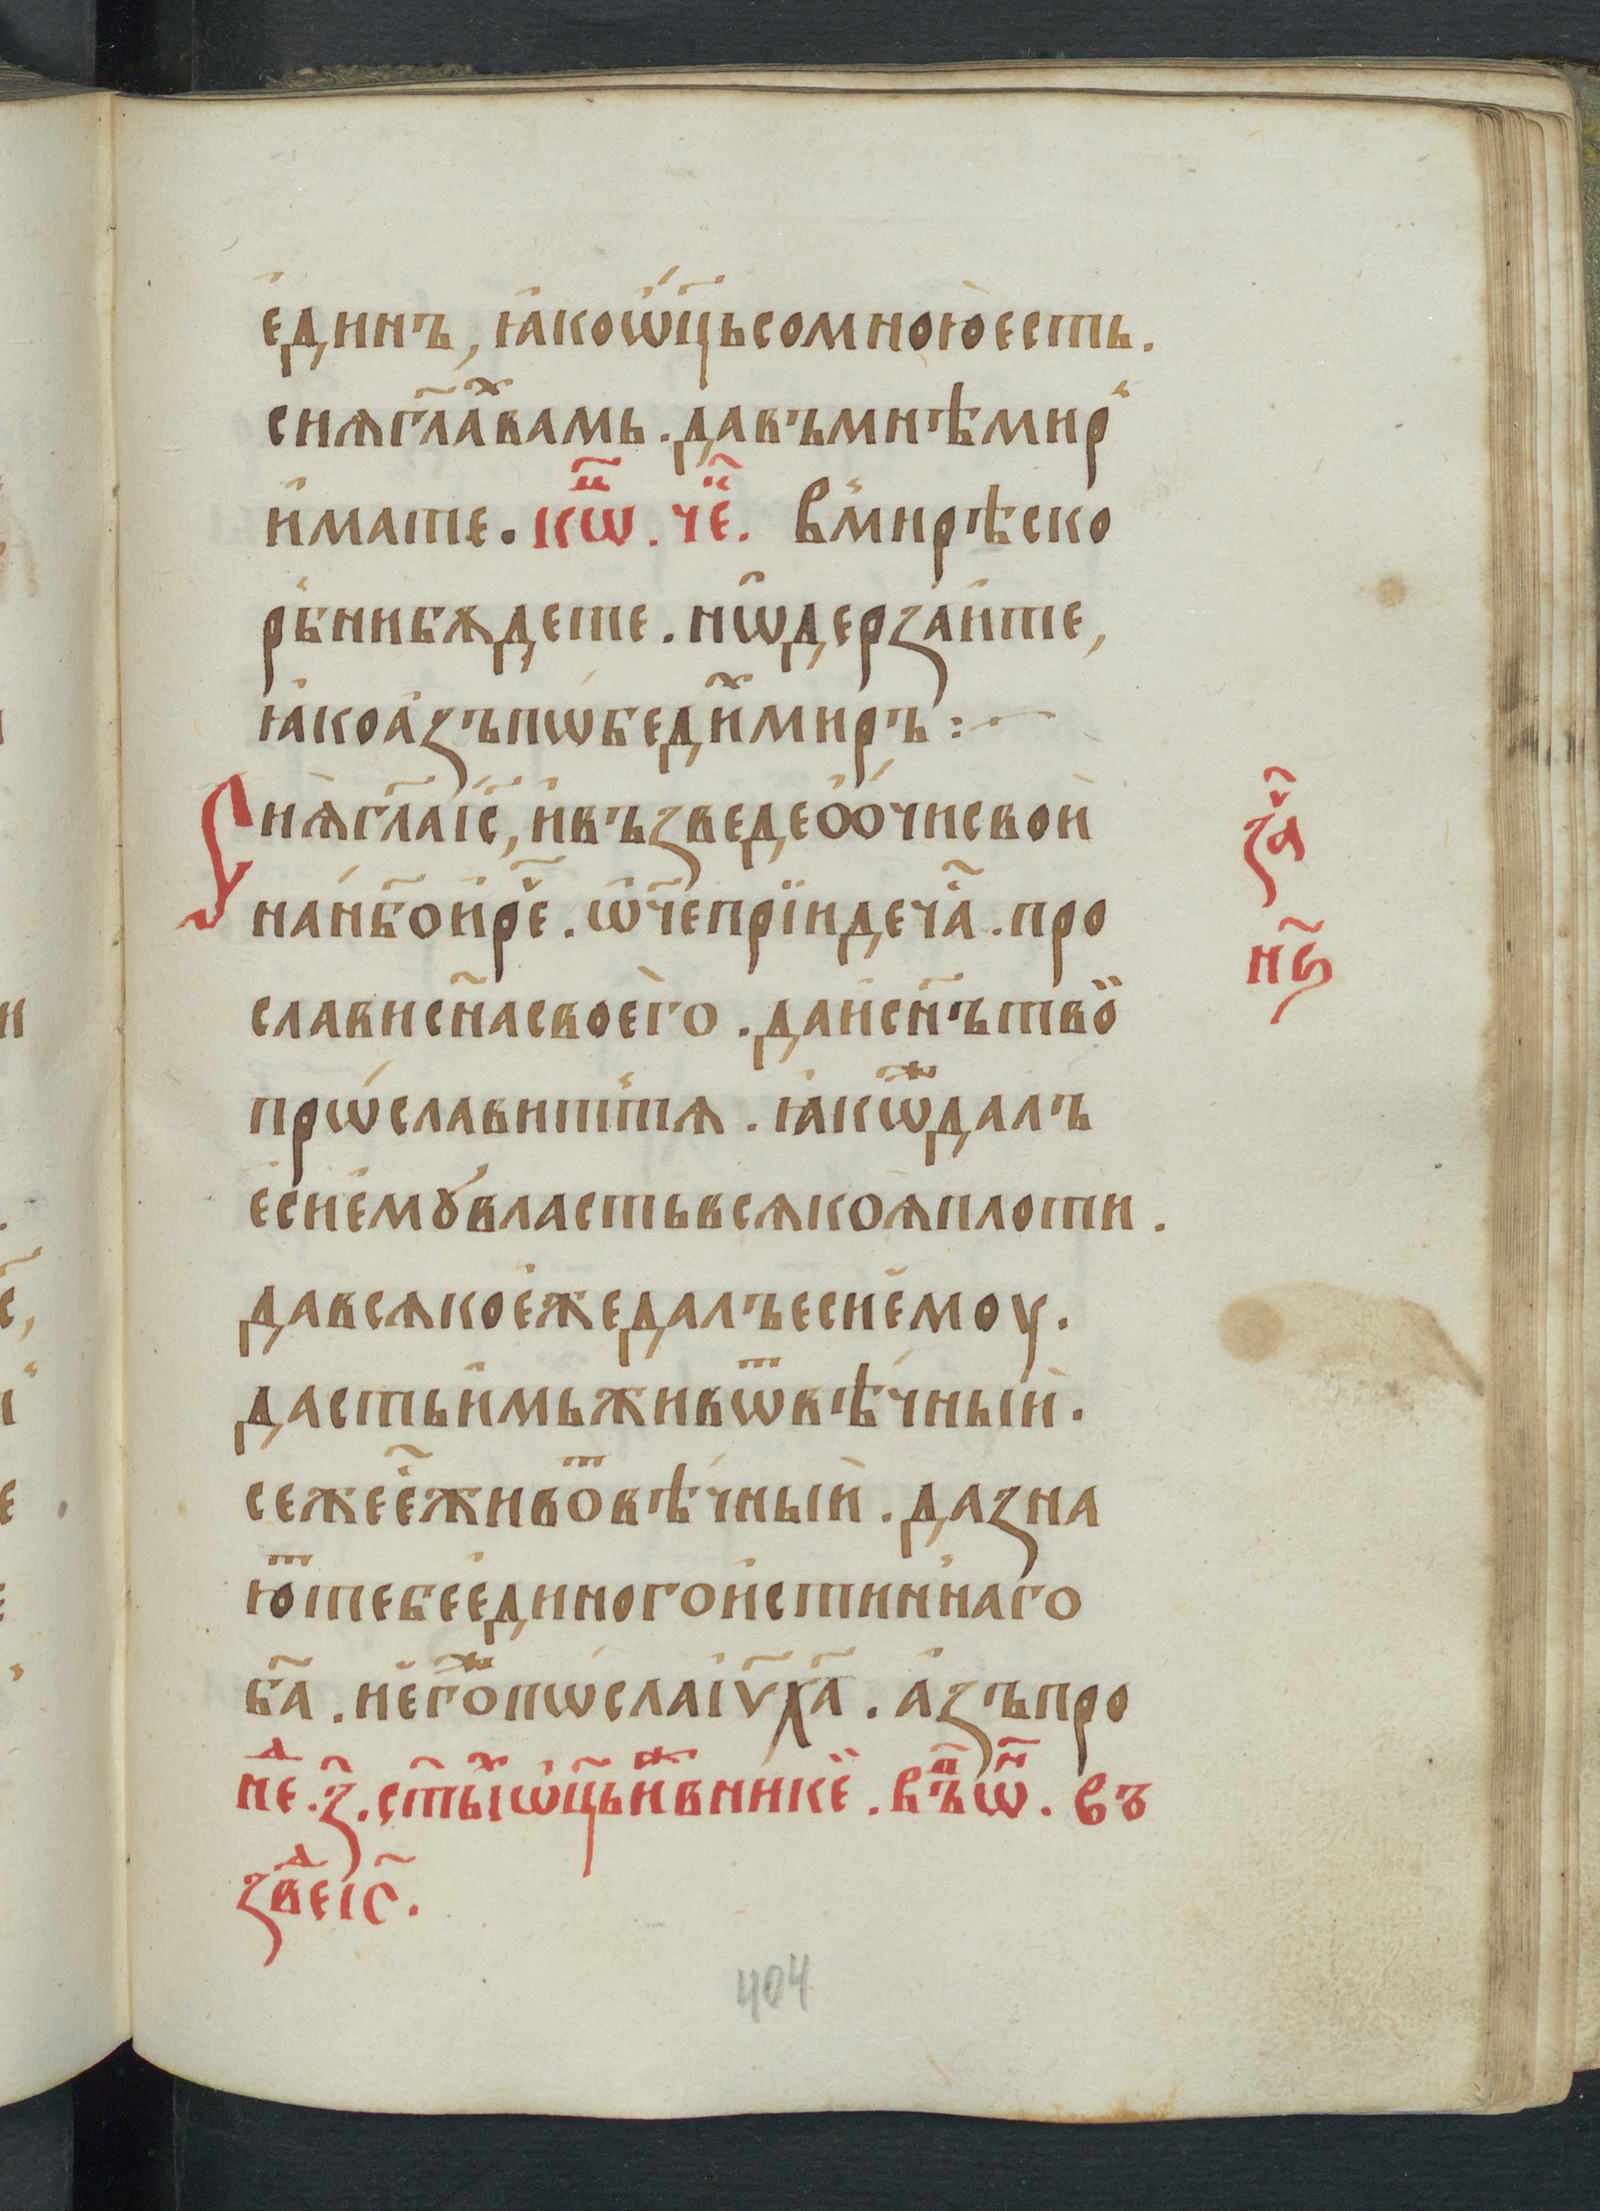 единъ, ꙗкоѡ҃цьсомноюесть.
сиѧгл҃аⷯвамь. давъмнѣмир
имате. кⷰ҇ѡ. чеⷦ҇. вмирѣско
рбнибѫдете. нѡдерзаите,
ꙗкоазъпѡбедиⷯмиръ:~
Сиѧгл҃аіс҃, ивъзведеꙭчисвои
нан҃боирⷱ҇е. ѡч҃епрїидеча҃. про
слависн҃асвоего. даисн҃ътвои
прѡславиттѧ. ꙗкѡⷤдалъ
есиемꙋвластьвсѧкоѧплоти.
давсѧкоежедалъесиемоу.
дастьимьживѡⷮвѣчныи.
сежееⷭ҇живоⷮвѣчныи. дазна
юⷮтебеединогоистиннаго
ба҃. иегоⷤпѡслаіѵ҃ха҃. азъпро
неⷣ. з҃. ст҃ыⷯѡц҃ьижвникеи. въⷪ҇ѡⷩ҇. въ
звеⷣіс҃.
заⷱ҇
нѕ҃
404